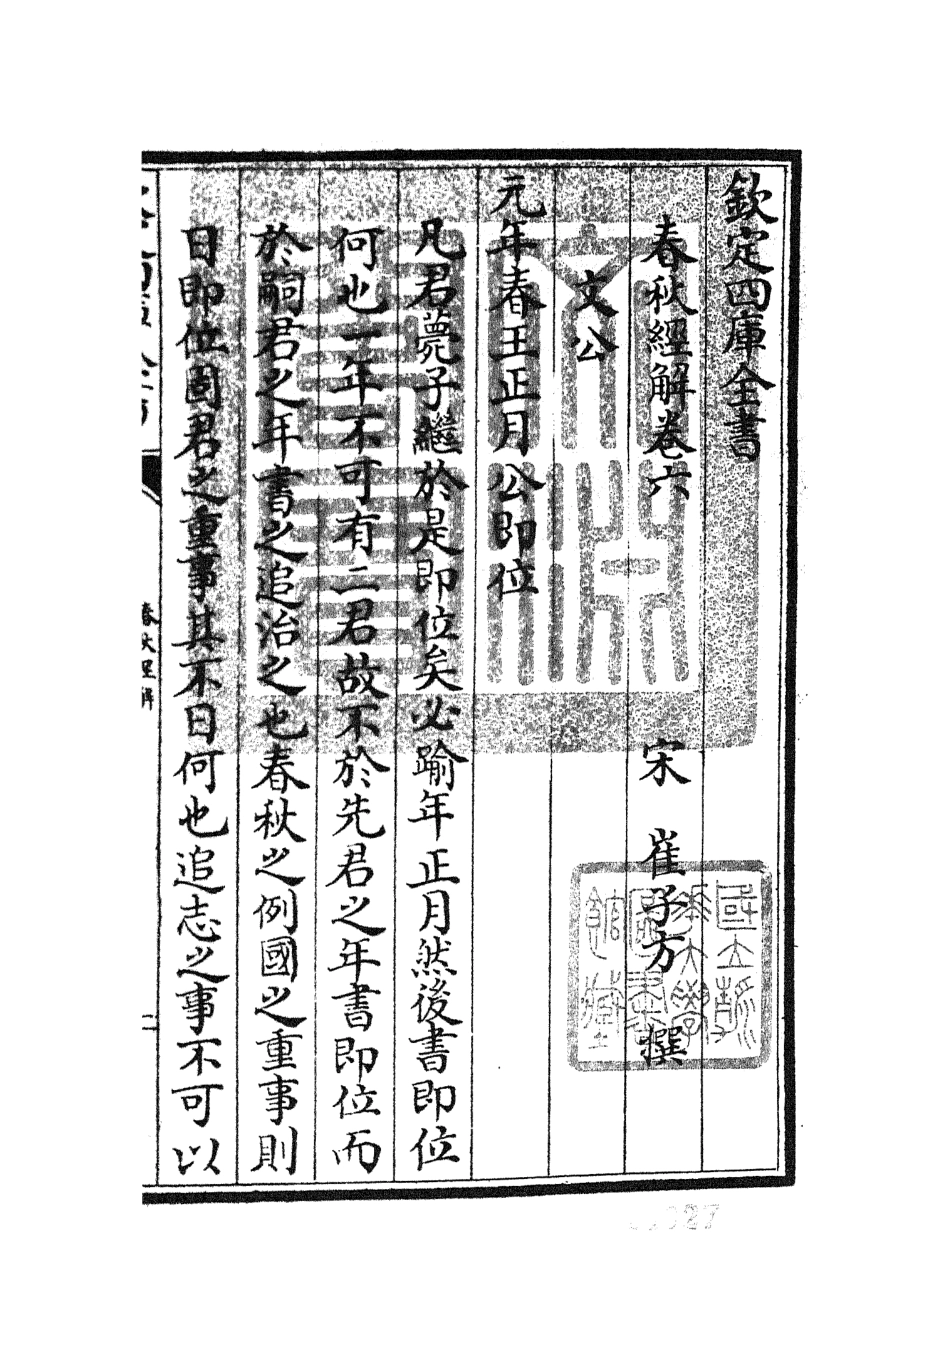 欽定四庫全書
春秋經解卷六
宋 崔子方 撰
文公
元年春王正月公即位
凡君薨子繼於是即位矣必踰年正月然後書即位
何也一年不可有二君故不於先君之年書即位而
於嗣君之年書之追治之也春秋之例國之重事則
日即位固君之重事其不日何也追志之事不可以
春秋經解